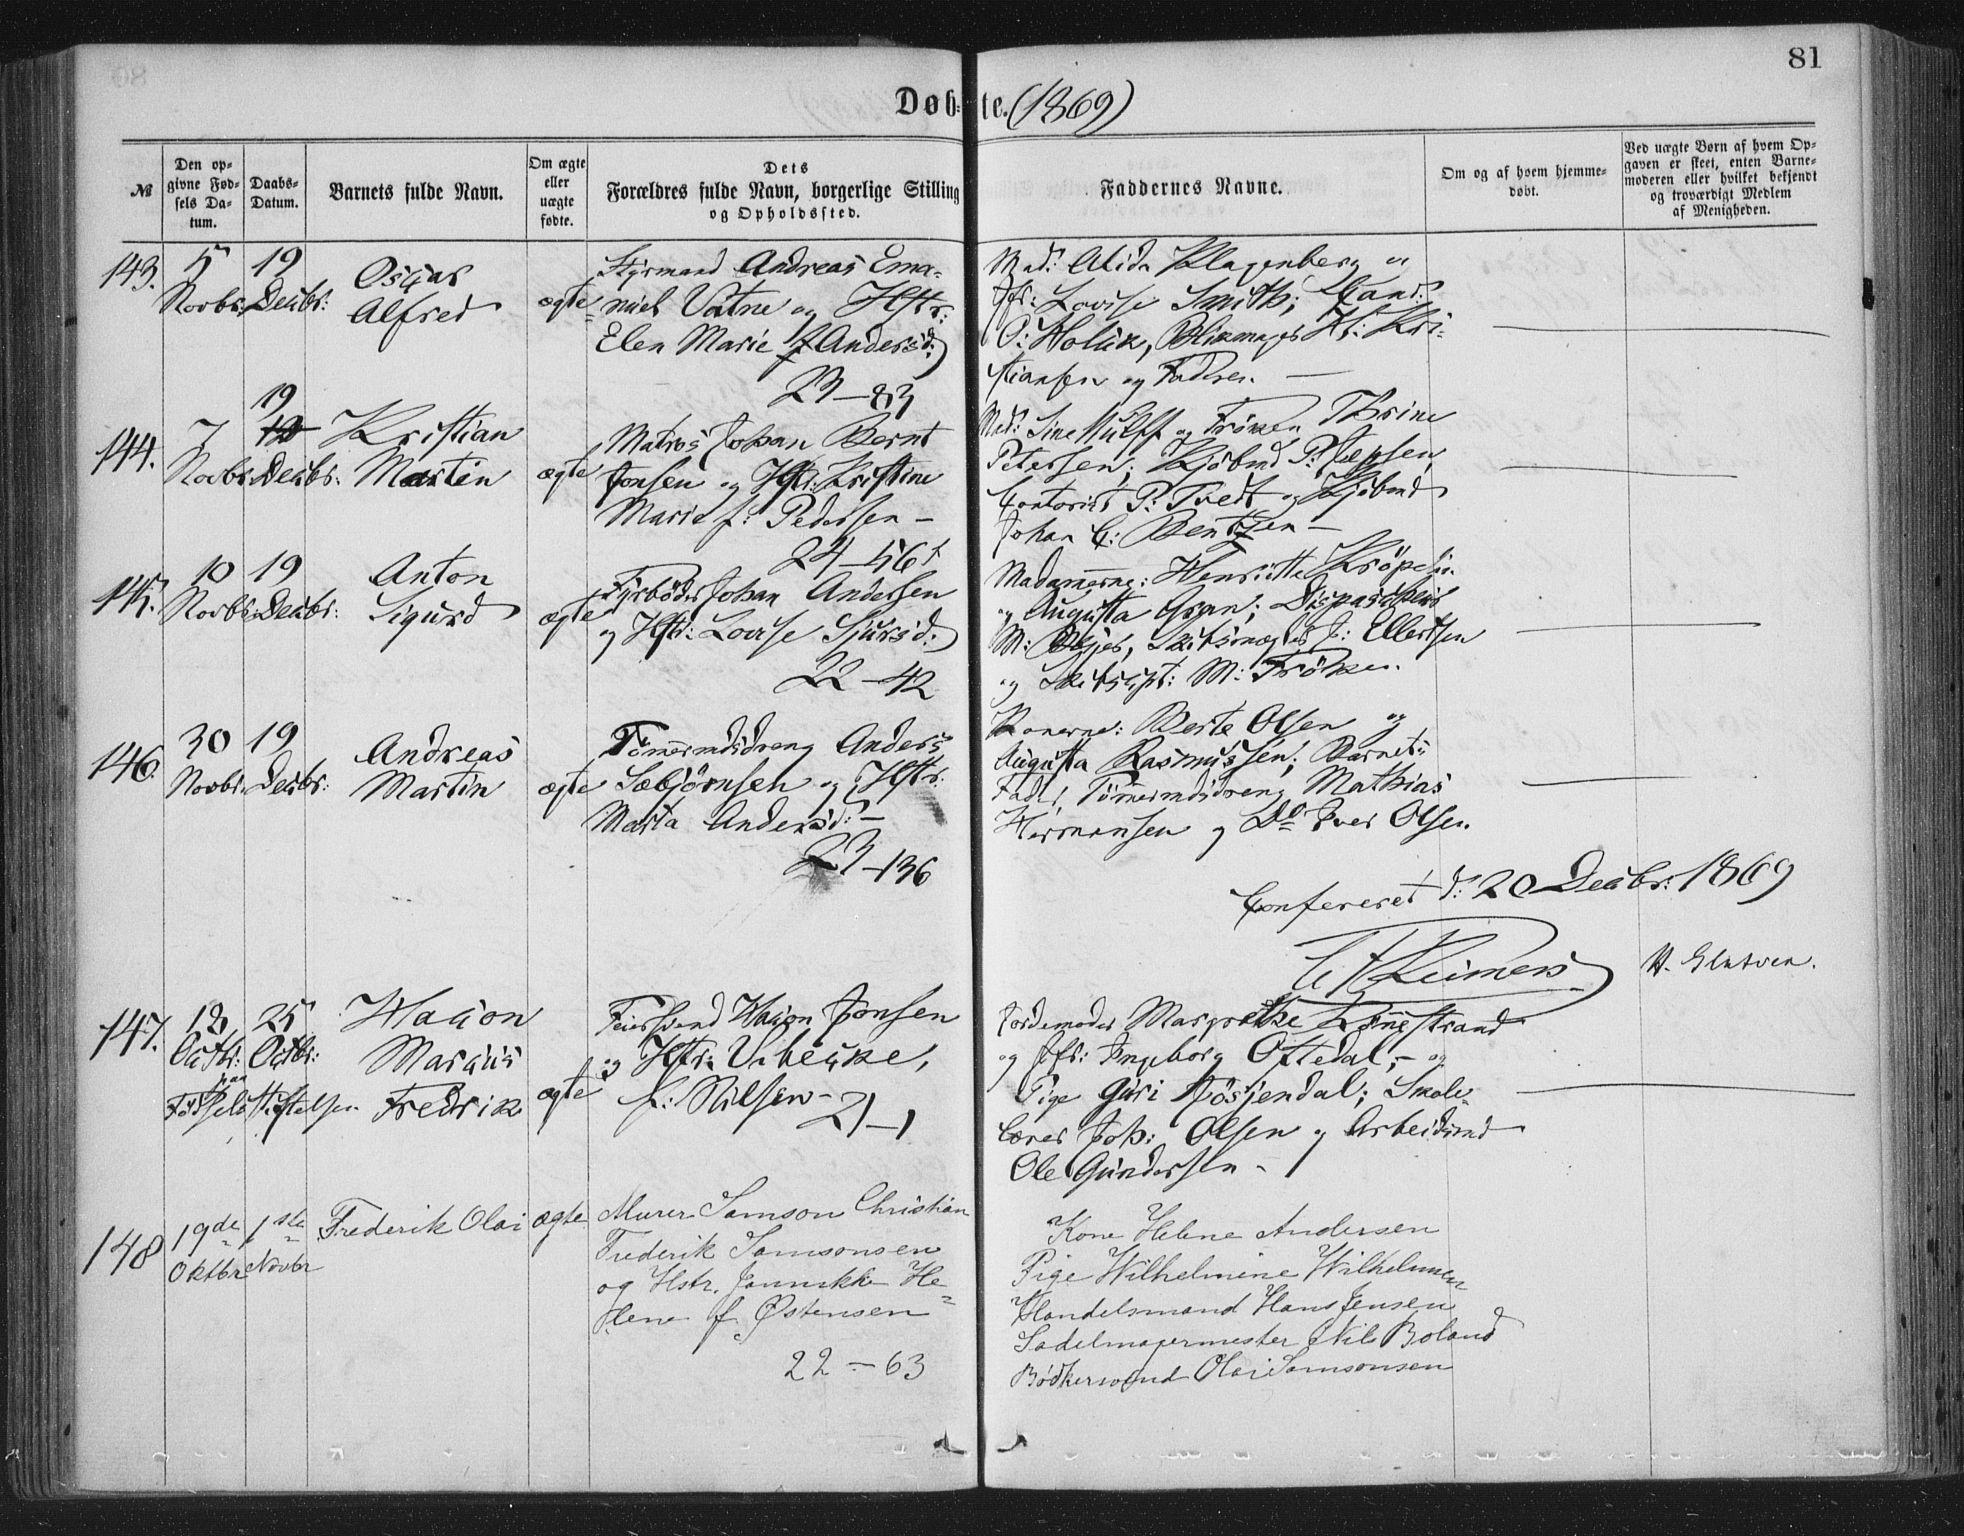 81
Døb-te. (1869)
№
Den opgivne Fødsels Datum.
Daabs-Datum.
Barnets fulde Navn.
Om ægte eller uægte fødte.
Dets Forældres fulde Navn, borgerlige Stilling og Opholdssted.
Faddernes Navne.
Om og af hvem hjemmedøbt.
Ved uægte Børn af hvem Opgaven er skeet, enten Barnemoderen eller hvilket bekjendt og troværdigt Medlem af Menigheden.
143.
5 Novbr:
19 Decbr:
Oscar
Alfred
ægte
Styrmand Andreas Ema-
nuel Vatne og Hstr:
Elen Marie f Andersd:
23-83
Mad: Alida Klagenberg og
Jfr: Lovise Smith; Cand:
P: Holck, Blikmager Kr: Kri-
stiansen og Faderen.
144.
7 Novbr:
19 Decbr:
Kristian
Martin
ægte
Matros Johan Bernt
Jonsen og Hstr: Kristine
Marie f: Pedersen -
24-56
Mad: Sine Wulff og Frøken Thrine
Petersen; Kjøbmd P: Jepsen,
Contorist P: Tvedt og Kjøbmd
Johan C: Bentzen -
145.
10 Novbr:
19 Decbr:
Anton
Sigurd
ægte
Fyrbøder Johan Andersen
og Hstr: Lovise Sjursd:
22-42
Madamerne: Henriette Krøpelin
og Augusta Gran; Dispaschør
M: , Skibsmægler J: Ellertsen
og Skibscpt: M: Frøken.
146.
30 Novbr:
19 Decbr:
Andreas
Martin
ægte
Tømermdsdreng Anders
Sæbjørnsen og Hstr:
Marta Andersd: -
23-136
Konerne: Berte Olsen og
Augusta Rasmussen; Barnets
Fader, Tømermdsdreng Mathias
Hermansen og Do Iver Olsen.
Confereret d: 20 Decbr: 1869
Reimers
147.
12 Octbr:
25 Octbr:
paa Fødselsstiftelsen
Hacon
Marcus
Fredrik
ægte
Feiersvend Hacon Jonsen
og Hstr: Vibecke,
f: Nilsen -
21-1
Jordemoder Margrethe Kongstrand
og Jfr: Ingeborg Oftedal; - og
Pige Guri Jøsjendal; Skole-
lærer Joh: Olsen og Arbeidsmd
Ole Gundersen -
148
19de Oktbr
1ste Novbr
Frederik Olai
ægte
Murer Samson Christian
Frederik Samsonsen
og Hstr. Jannikke He-
lene f. Østensen
22-63
Kone Helene Andersen
Pige Wilhelmine Wilhelmsen
Handelsmand Hans Jensen
Sadelmagermester Nils Boland
Bødkersvend Olai Samsonsen